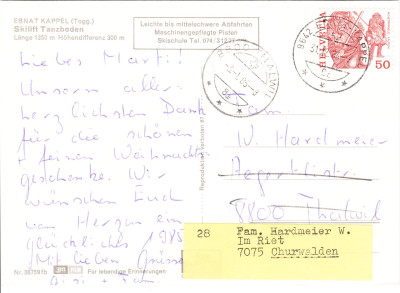 EBNAT KAPPEL (Togg.)
Skilift Tanzboden
Länge 1250 m Höhendifferenz 300 m
Leichte bis mittelschwere Abfahrten
Maschinengepflegte Pisten
Skischule Tel. 074/
Liebes Marti!
Unsern aller-
herzlichsten Dank
für die schönen
+ feinen Weihnachts-
geschenke. Wir
wünschen Euch
von Herzen ein
glückliches 1985
Mit lieben Grüssen
Fam.
W. Hardmeier
8800 Thalwil
8800 THALWIL
9642 EBNAT-KAPPEL
HELVETIA
50
28
Fam. Hardmeier W.
Im Riet
7075 Churwalden
Für lebendige Erinnerungen